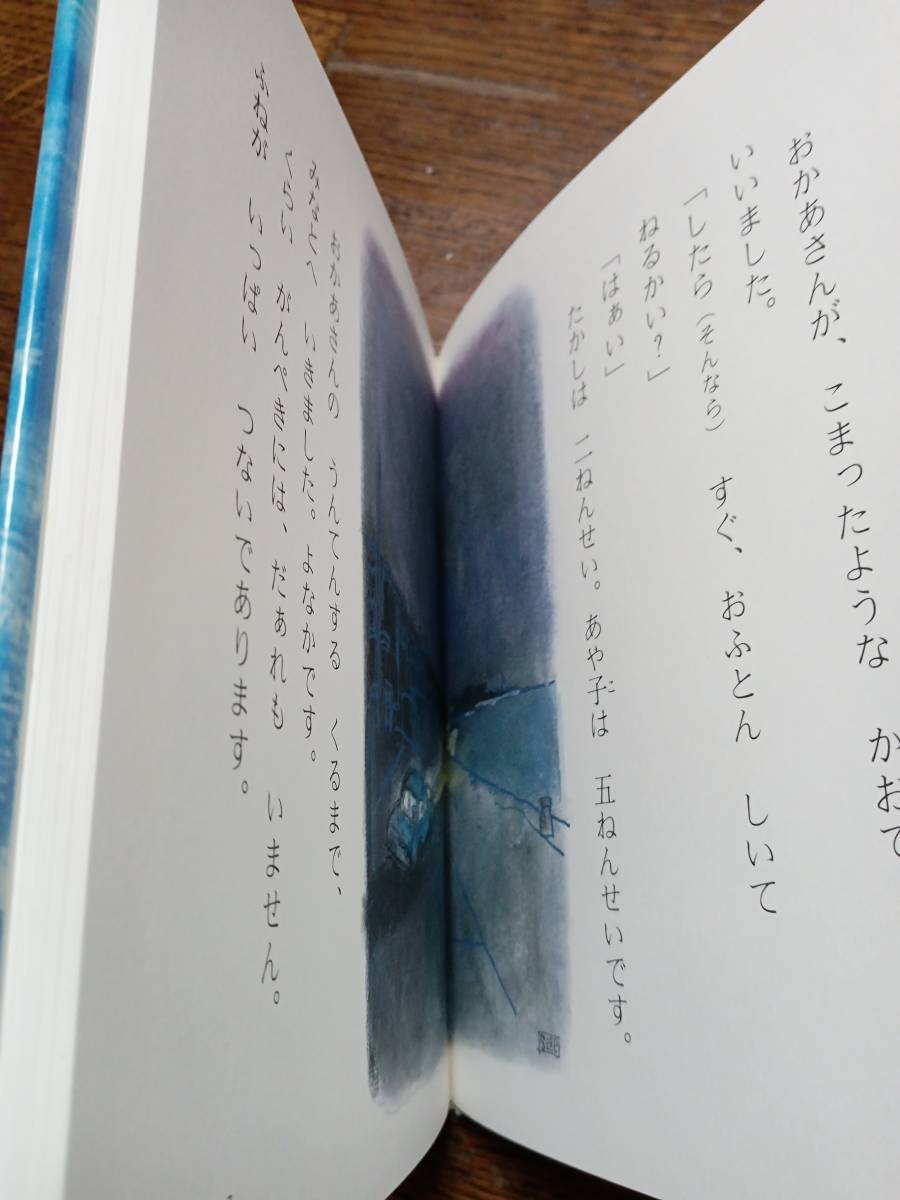 おかあさんが、こまったような かおで
いいました。
「したら（そんなら） すぐ、おふとん しいて
ねるかい？」
「はぁい」
たかしは 二ねんせい。あや子は 五ねんせいです。
おかあさんの うんてんする くるまで、
みなとへ いきました。よなかです。
くらい がんぺきには、だあれも いません。
ふねが いっぱい つないであります。